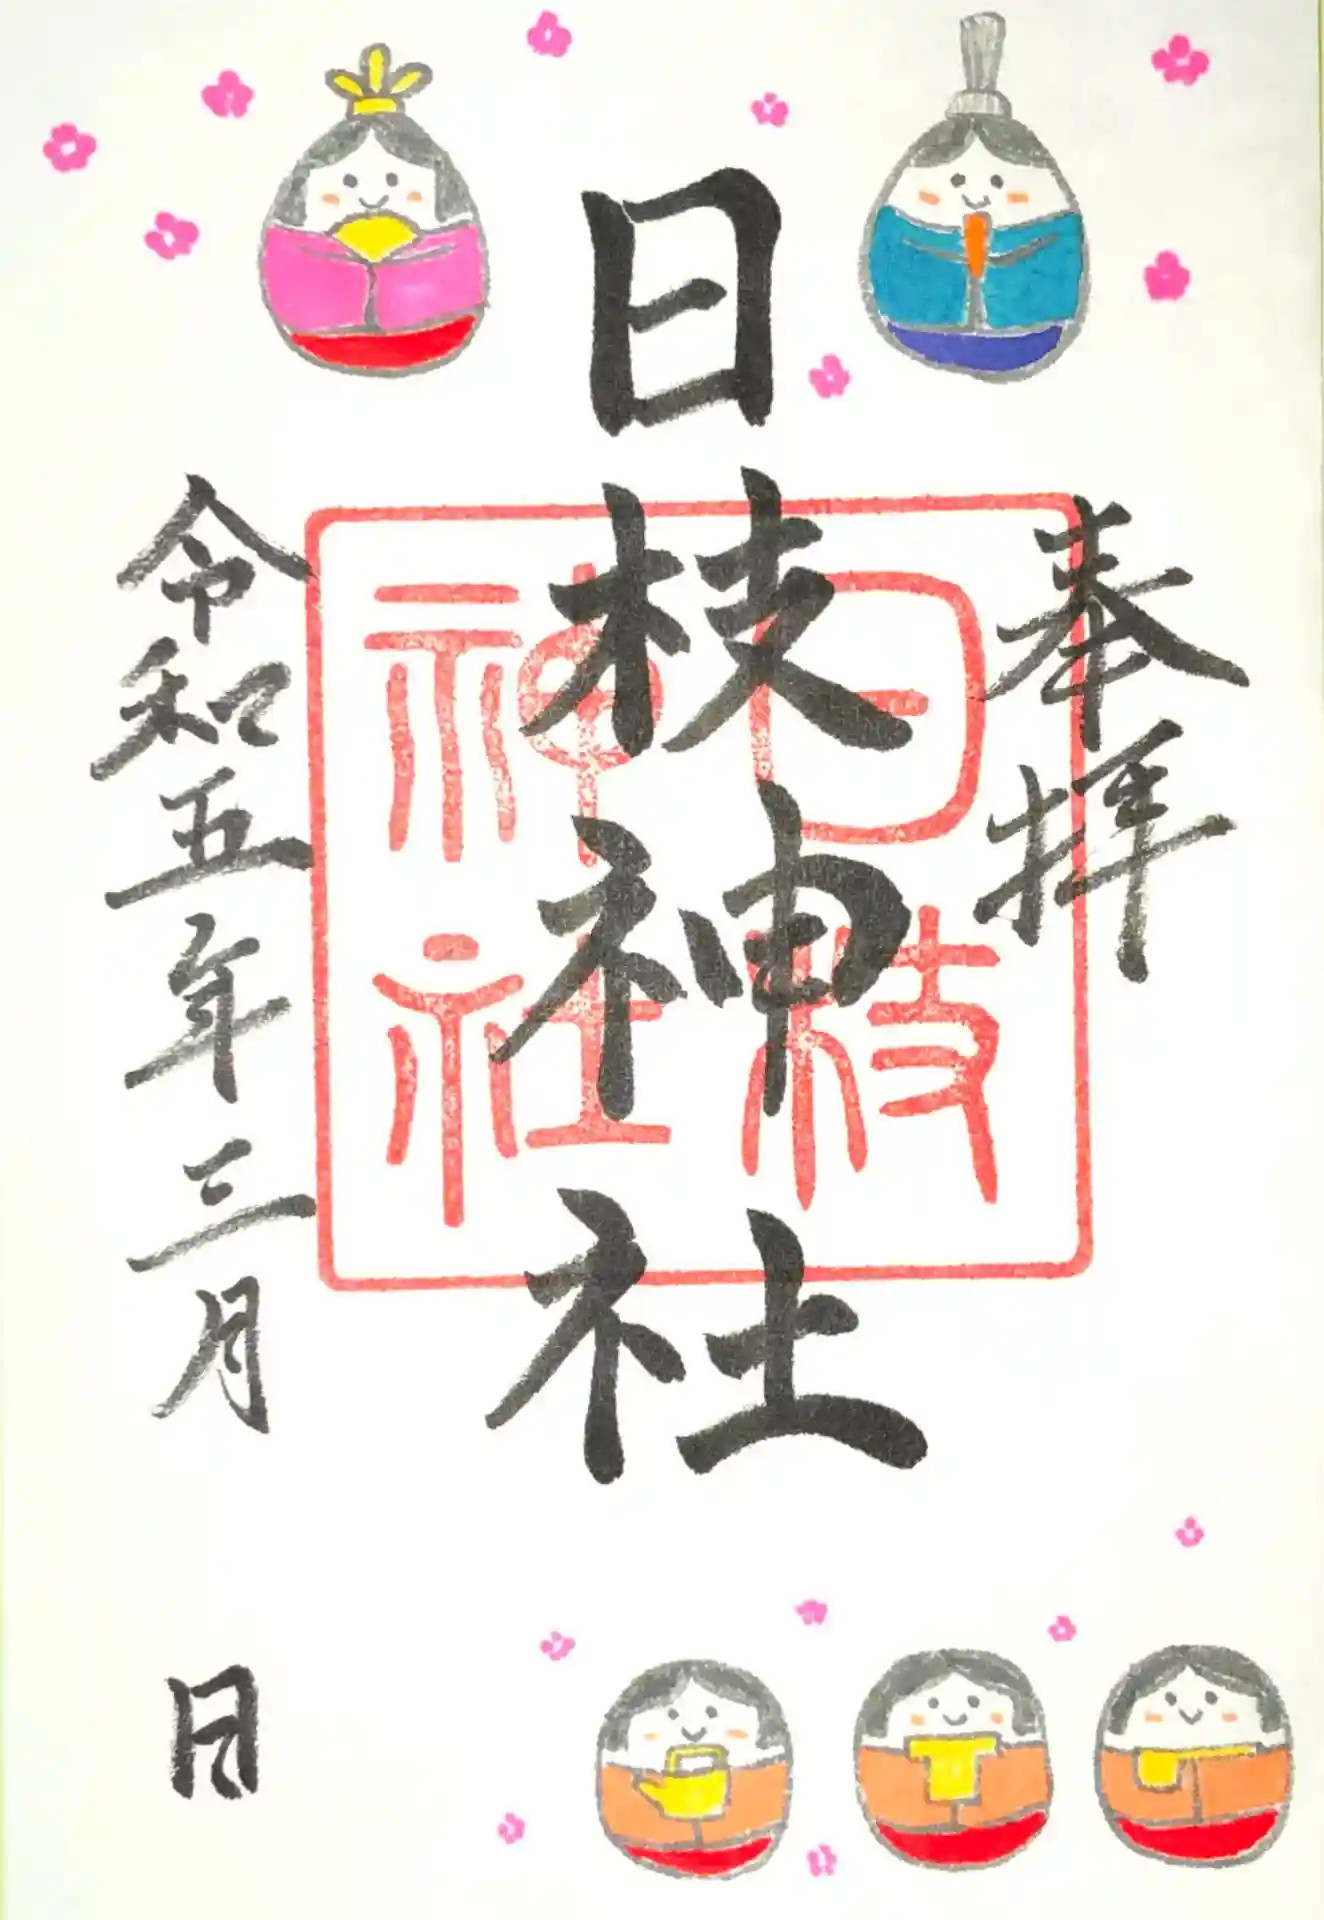 奉拝
日枝神社
日枝
神社
令和五年三月 日